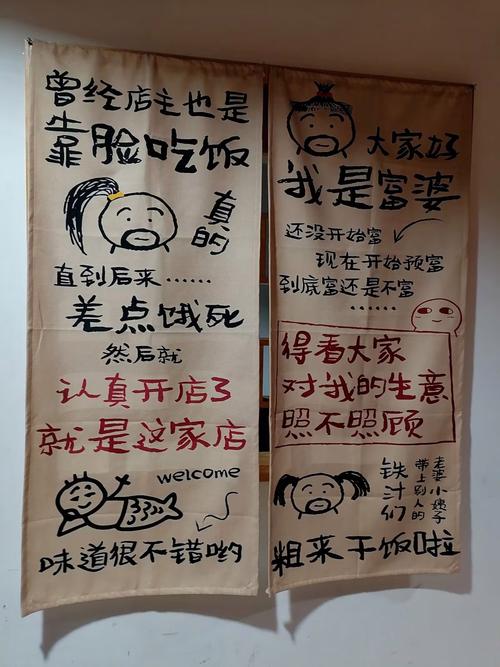 曾经店主也是
靠脸吃饭
真的
直到后来……
差点饿死
然后就
认真开店了
就是这家店
welcome
味道很不错哟
大家好
我是富婆
还没开始富
现在开始预富
到底富还是不富
……
得看大家
对我的生意
照不照顾
铁汁们
带上别人的
老婆小姨子
粗来干饭啦